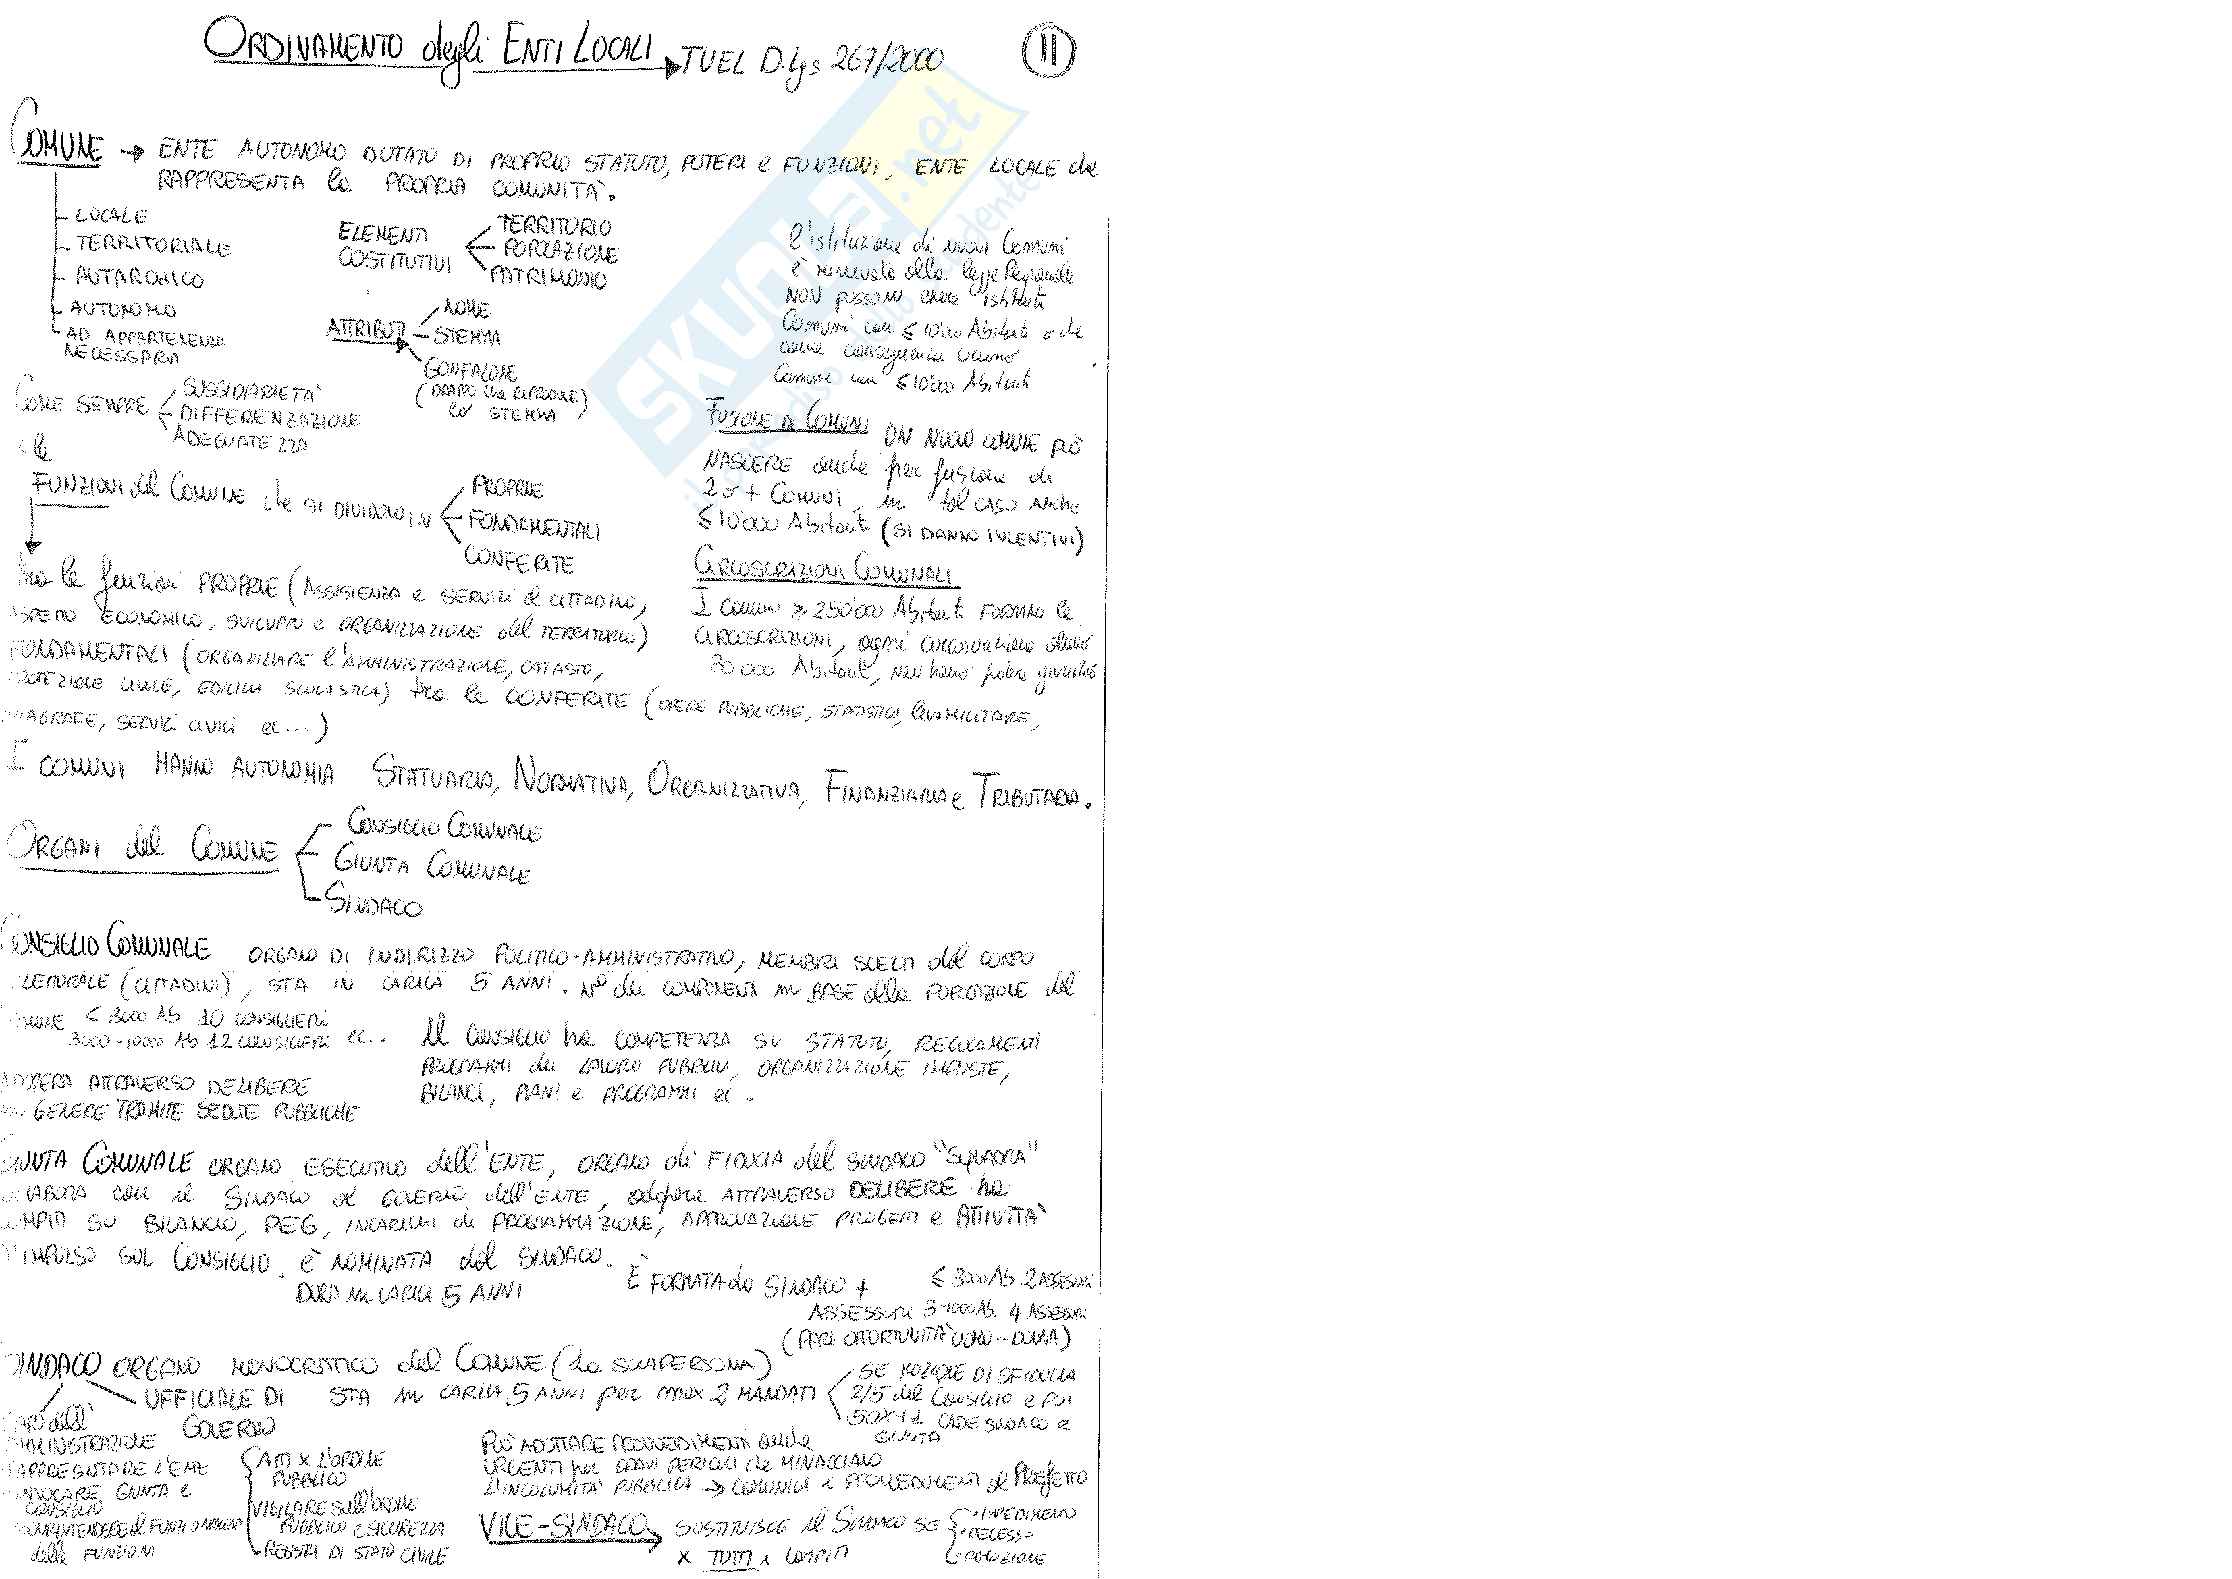 ORDINAMENTO degli ENTI LOCALI → TUEL D.lgs 267/2000
11
COMUNE → ENTE AUTONOMO DOTATO DI PROPRIO STATUTO, POTERI e FUNZIONI, ENTE LOCALE che
RAPPRESENTA la PROPRIA COMUNITÀ.
LOCALE
TERRITORIALE
AUTARCHICO
AUTONOMO
AD APPARTENENZA
NECESSARIA
ELEMENTI
COSTITUTIVI
TERRITORIO
POPOLAZIONE
PATRIMONIO
ATTRIBUTI
NOME
STEMMA
GONFALONE
(DRAPPO che RIPRODUCE)
lo STEMMA
l'istituzione di nuovi Comuni
è riservata alla legge Regionale
NON possono essere istituiti
Comuni con ≤ 10'000 Abitanti o che
come conseguenza
Comuni con ≤ 10'000 Abitanti
COME SEMPRE
SUSSIDIARIETÀ
DIFFERENZIAZIONE
ADEGUATEZZA
le
FUNZIONI del COMUNE che SI DIVIDONO IN
PROPRIE
FONDAMENTALI
CONFERITE
FUSIONE di COMUNI UN NUOVO COMUNE PUÒ
NASCERE anche per fusione di
2 o + COMUNI, in tal CASO ANCHE
≤ 10'000 Abitanti (SI DANNO INCENTIVI)
CIRCOSCRIZIONI COMUNALI
I comuni > 250'000 Abitanti FORMANO le
CIRCOSCRIZIONI, ogni circoscrizione
30 000 Abitanti, non hanno potere giuridico
tra le funzioni PROPRIE (ASSISTENZA e SERVIZI al CITTADINO,
ASPETTO ECONOMICO, SVILUPPO e ORGANIZZAZIONE del TERRITORIO)
FONDAMENTALI (ORGANIZZARE l'AMMINISTRAZIONE, CATASTO,
PROTEZIONE CIVILE, EDILIZIA SCOLASTICA) tra le CONFERITE (OPERE PUBBLICHE, STATISTICI, leva MILITARE,
ANAGRAFE, SERVIZI CIVILI ec...)
I COMUNI HANNO AUTONOMIA STATUARIA, NORMATIVA, ORGANIZZATIVA, FINANZIARIA e TRIBUTARIA.
ORGANI del COMUNE
CONSIGLIO COMUNALE
GIUNTA COMUNALE
SINDACO
CONSIGLIO COMUNALE ORGANO DI INDIRIZZO POLITICO-AMMINISTRATIVO, MEMBRI SCELTI dal CORPO
ELETTORALE (CITTADINI), STA IN CARICA 5 ANNI. N° dei COMPONENTI in BASE alla POPOLAZIONE del
COMUNE ≤ 3000 Ab 10 CONSIGLIERI
3000-10000 Ab 12 CONSIGLIERI ec...
Il CONSIGLIO ha COMPETENZA SU STATUTI, REGOLAMENTI
PROGRAMMI dei LAVORI PUBBLICI, ORGANIZZAZIONE IMPOSTE,
BILANCI, PIANI e PROGRAMMI ec.
ADOPERA ATTRAVERSO DELIBERE
in GENERE TRAMITE SEDUTE PUBBLICHE
GIUNTA COMUNALE ORGANO ESECUTIVO dell'ENTE, ORGANO di FIDUCIA del SINDACO "SQUADRA"
COLLABORA con il SINDACO al GOVERNO dell'ENTE, adopera ATTRAVERSO DELIBERE ha
COMPITI SU BILANCIO, PEG, INCARICHI di PROGRAMMAZIONE, APPROVAZIONE PROGETTI e ATTIVITÀ
D'IMPULSO SUL CONSIGLIO. È NOMINATA dal SINDACO.
DURA in CARICA 5 ANNI
È FORMATA da SINDACO +
ASSESSORI
≤ 3000 Ab. 2 ASSESSORI
3-10000 Ab. 4 ASSESSORI
(PARI OPPORTUNITÀ UOMO-DONNA)
SINDACO ORGANO MONOCRATICO del COMUNE (da SOLA PERSONA)
UFFICIALE DI
GOVERNO
STA in CARICA 5 ANNI per max 2 MANDATI
SE MOZIONE DI SFIDUCIA
2/5 del CONSIGLIO e POI
50%+1 CADE SINDACO e
GIUNTA
CAPO dell'
AMMINISTRAZIONE
RAPPRESENTARE l'ENTE
CONVOCARE GIUNTA e
CONSIGLIO
SOVRINTENDERE al FUNZIONAMENTO
delle FUNZIONI
ATTI X L'ORDINE
PUBBLICO
VIGILARE sull'ORDINE
PUBBLICO e SICUREZZA
REGISTRI DI STATO CIVILE
PUÒ ADOTTARE PROVVEDIMENTI anche
URGENTI per GRAVI PERICOLI che MINACCIANO
L'INCOLUMITÀ PUBBLICA → COMUNICA i PROVVEDIMENTI al PREFETTO
VICE-SINDACO → SOSTITUISCE il SINDACO SE
X TUTTI i COMPITI
IMPEDIMENTO
DECESSO
RIMOZIONE
SKUOLA.net